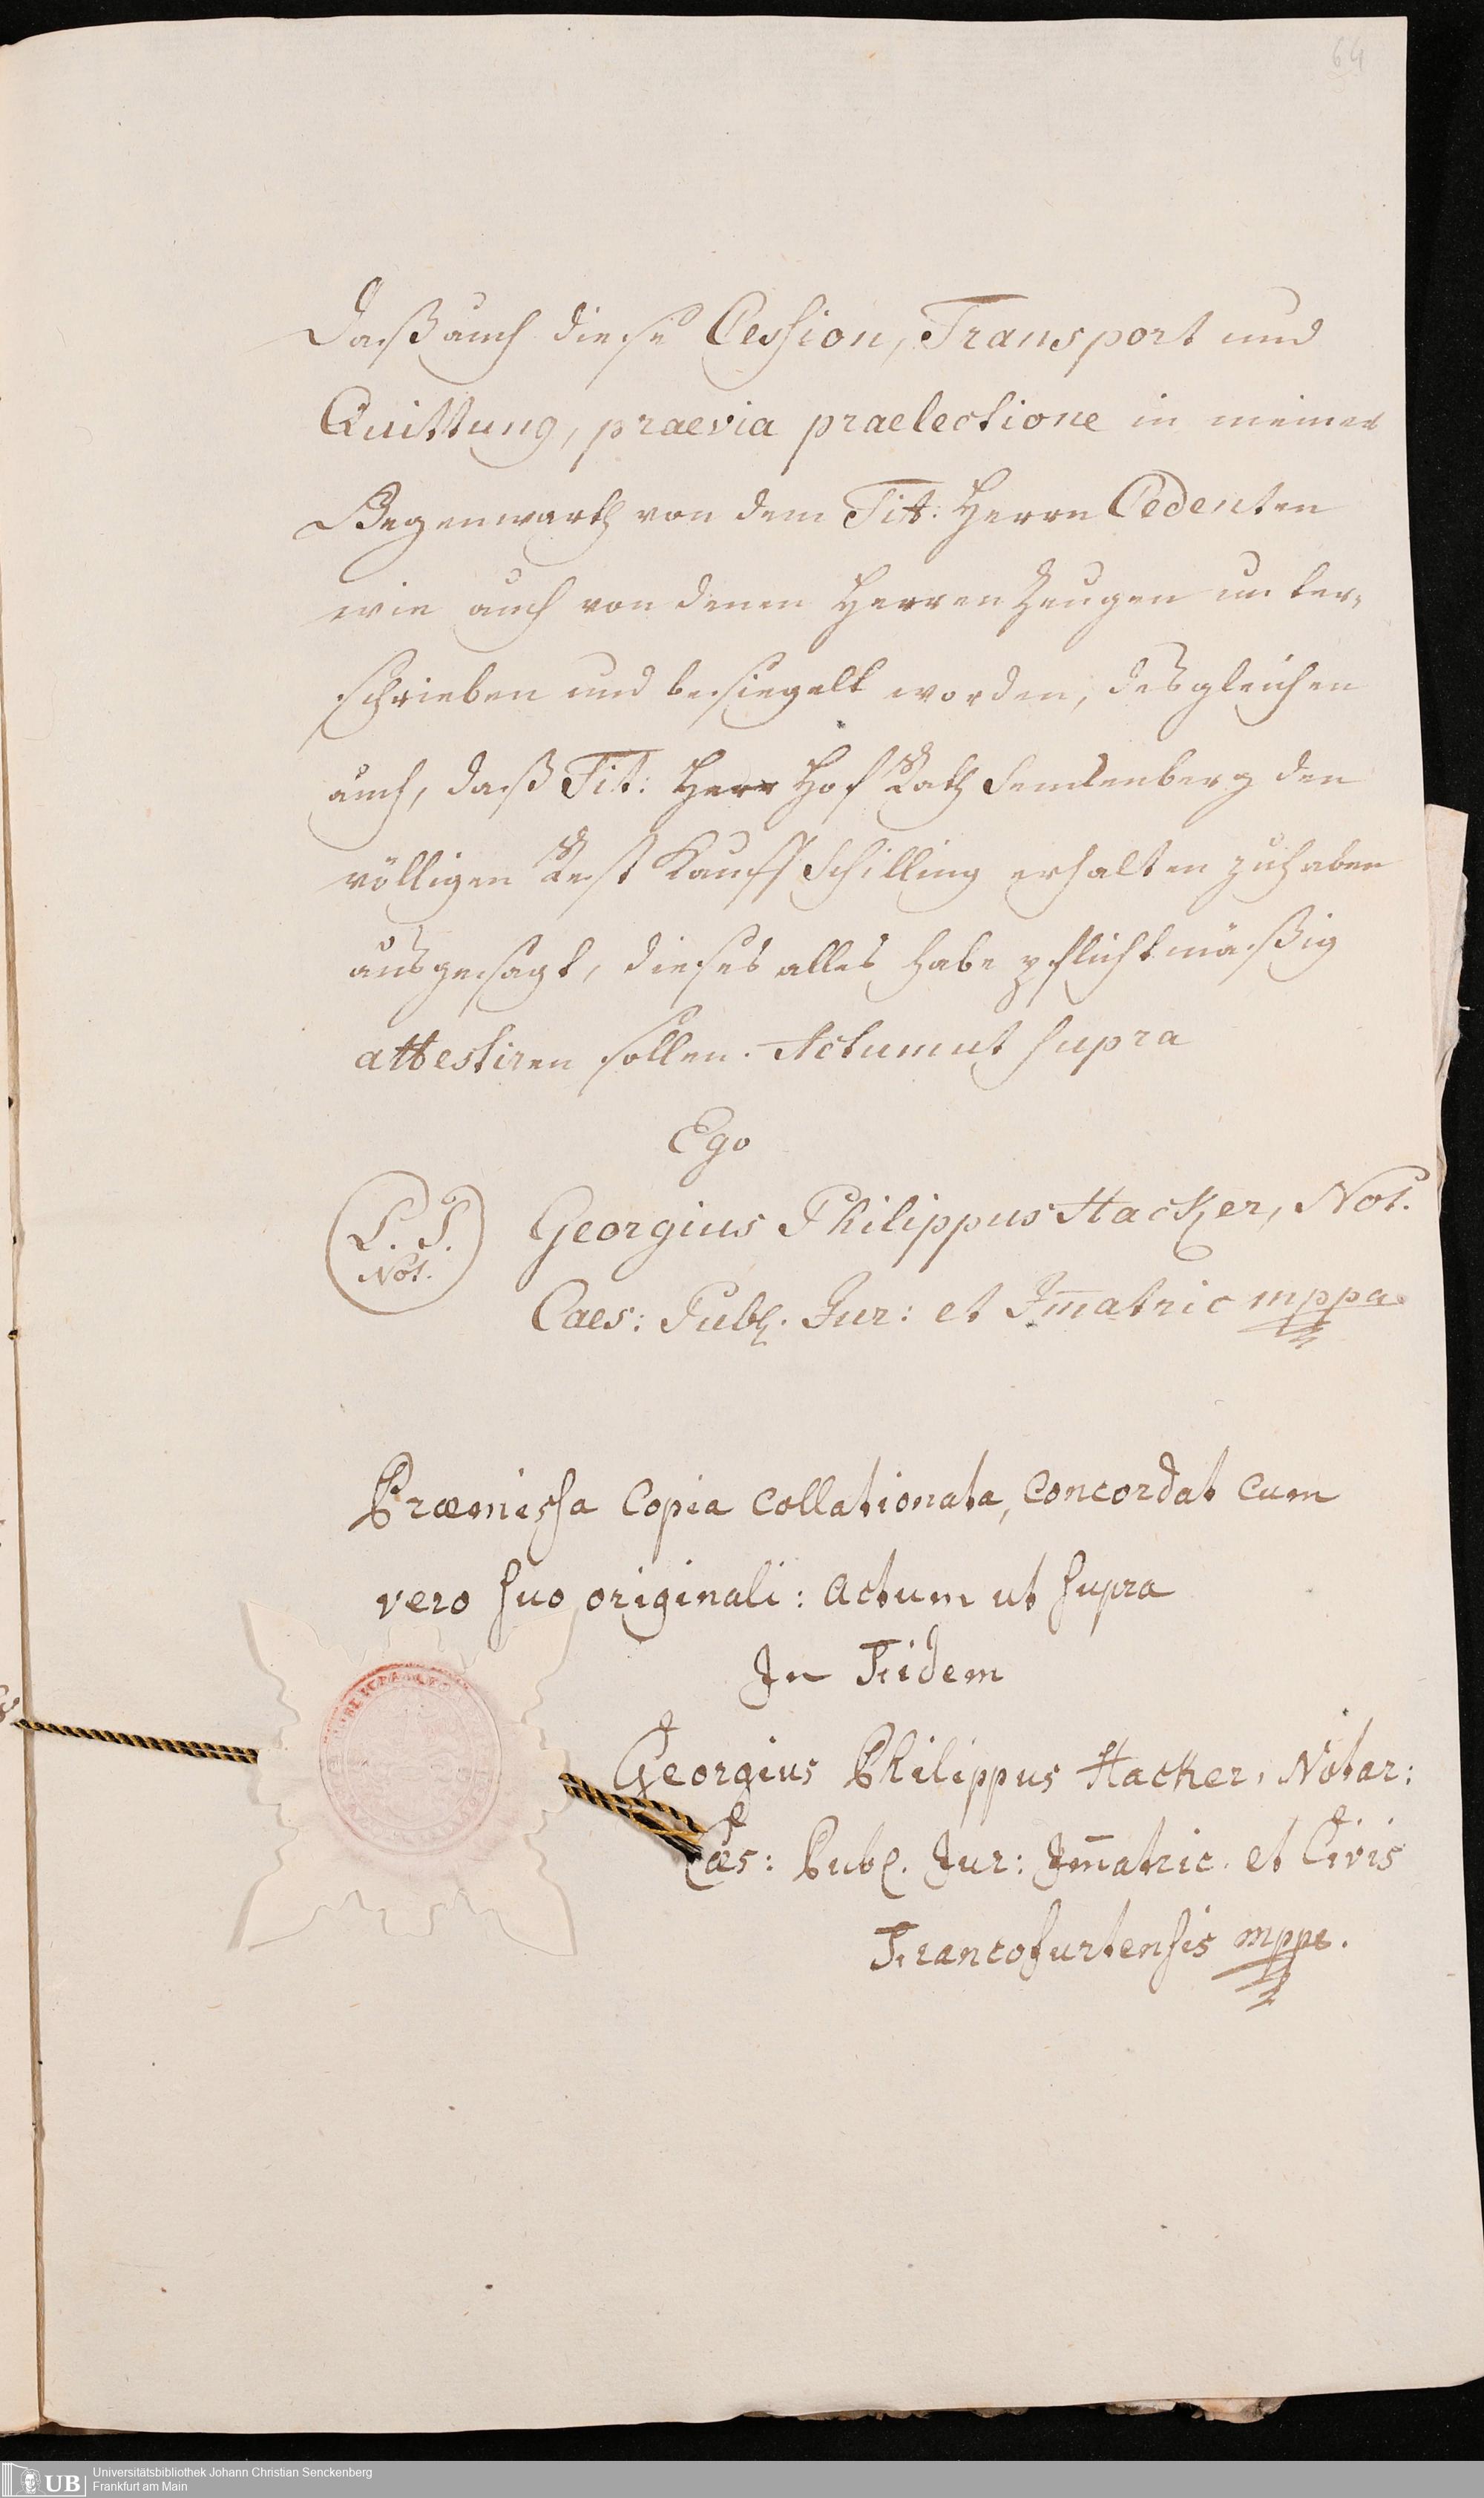 64
Daß auch diese Cession, Transport und
Quittung, praevia praelectione in meiner
Gegenwarth von dem Tit: Herrn Cedenten
wie auch von denen Herren Zeugen unter-
schrieben und besiegelt worden, desgleichen
auch, daß Tit: Herr Hof Rath Senckenberg den
völligen Rest Kauff Schilling erhalten zu haben
ausgesagt, dieses alles habe pflichtmäßig
attestiren sollen. Actum ut supra
Ego
L. S.
Not.
Georgius Philippus Hacker, Not.
Caes: Publ. Jur: et Im̅atric mppa
Præmissa Copia Collationata, Concordat cum
vero suo originali: Actum ut supra
In Fidem
Georgius Philippus Hacker, Notar:
Cæs: Publ. Jur: Im̅atric. et Civis
Francofurtensis mppa.
UB
Universitätsbibliothek Johann Christian Senckenberg
Frankfurt am Main